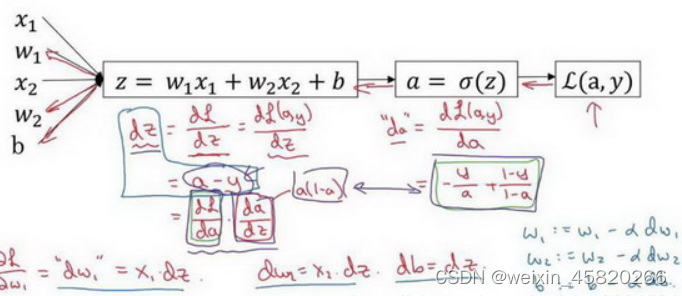 x₁
w₁
x₂
w₂
b
z = w₁x₁ + w₂x₂ + b
a = σ(z)
ℒ(a, y)
dz = dℒ/dz = dℒ(a,y)/dz
"da" = dℒ(a,y)/da
= a - y
= dℒ/da · da/dz
a(1-a)
= -y/a + (1-y)/(1-a)
∂ℒ/∂w₁ = "dw₁" = x₁·dz.
dw₂ = x₂·dz.
db = dz.
w₁ := w₁ - α dw₁
w₂ := w₂ - α dw₂
b := b - α db
CSDN @weixin_45820266